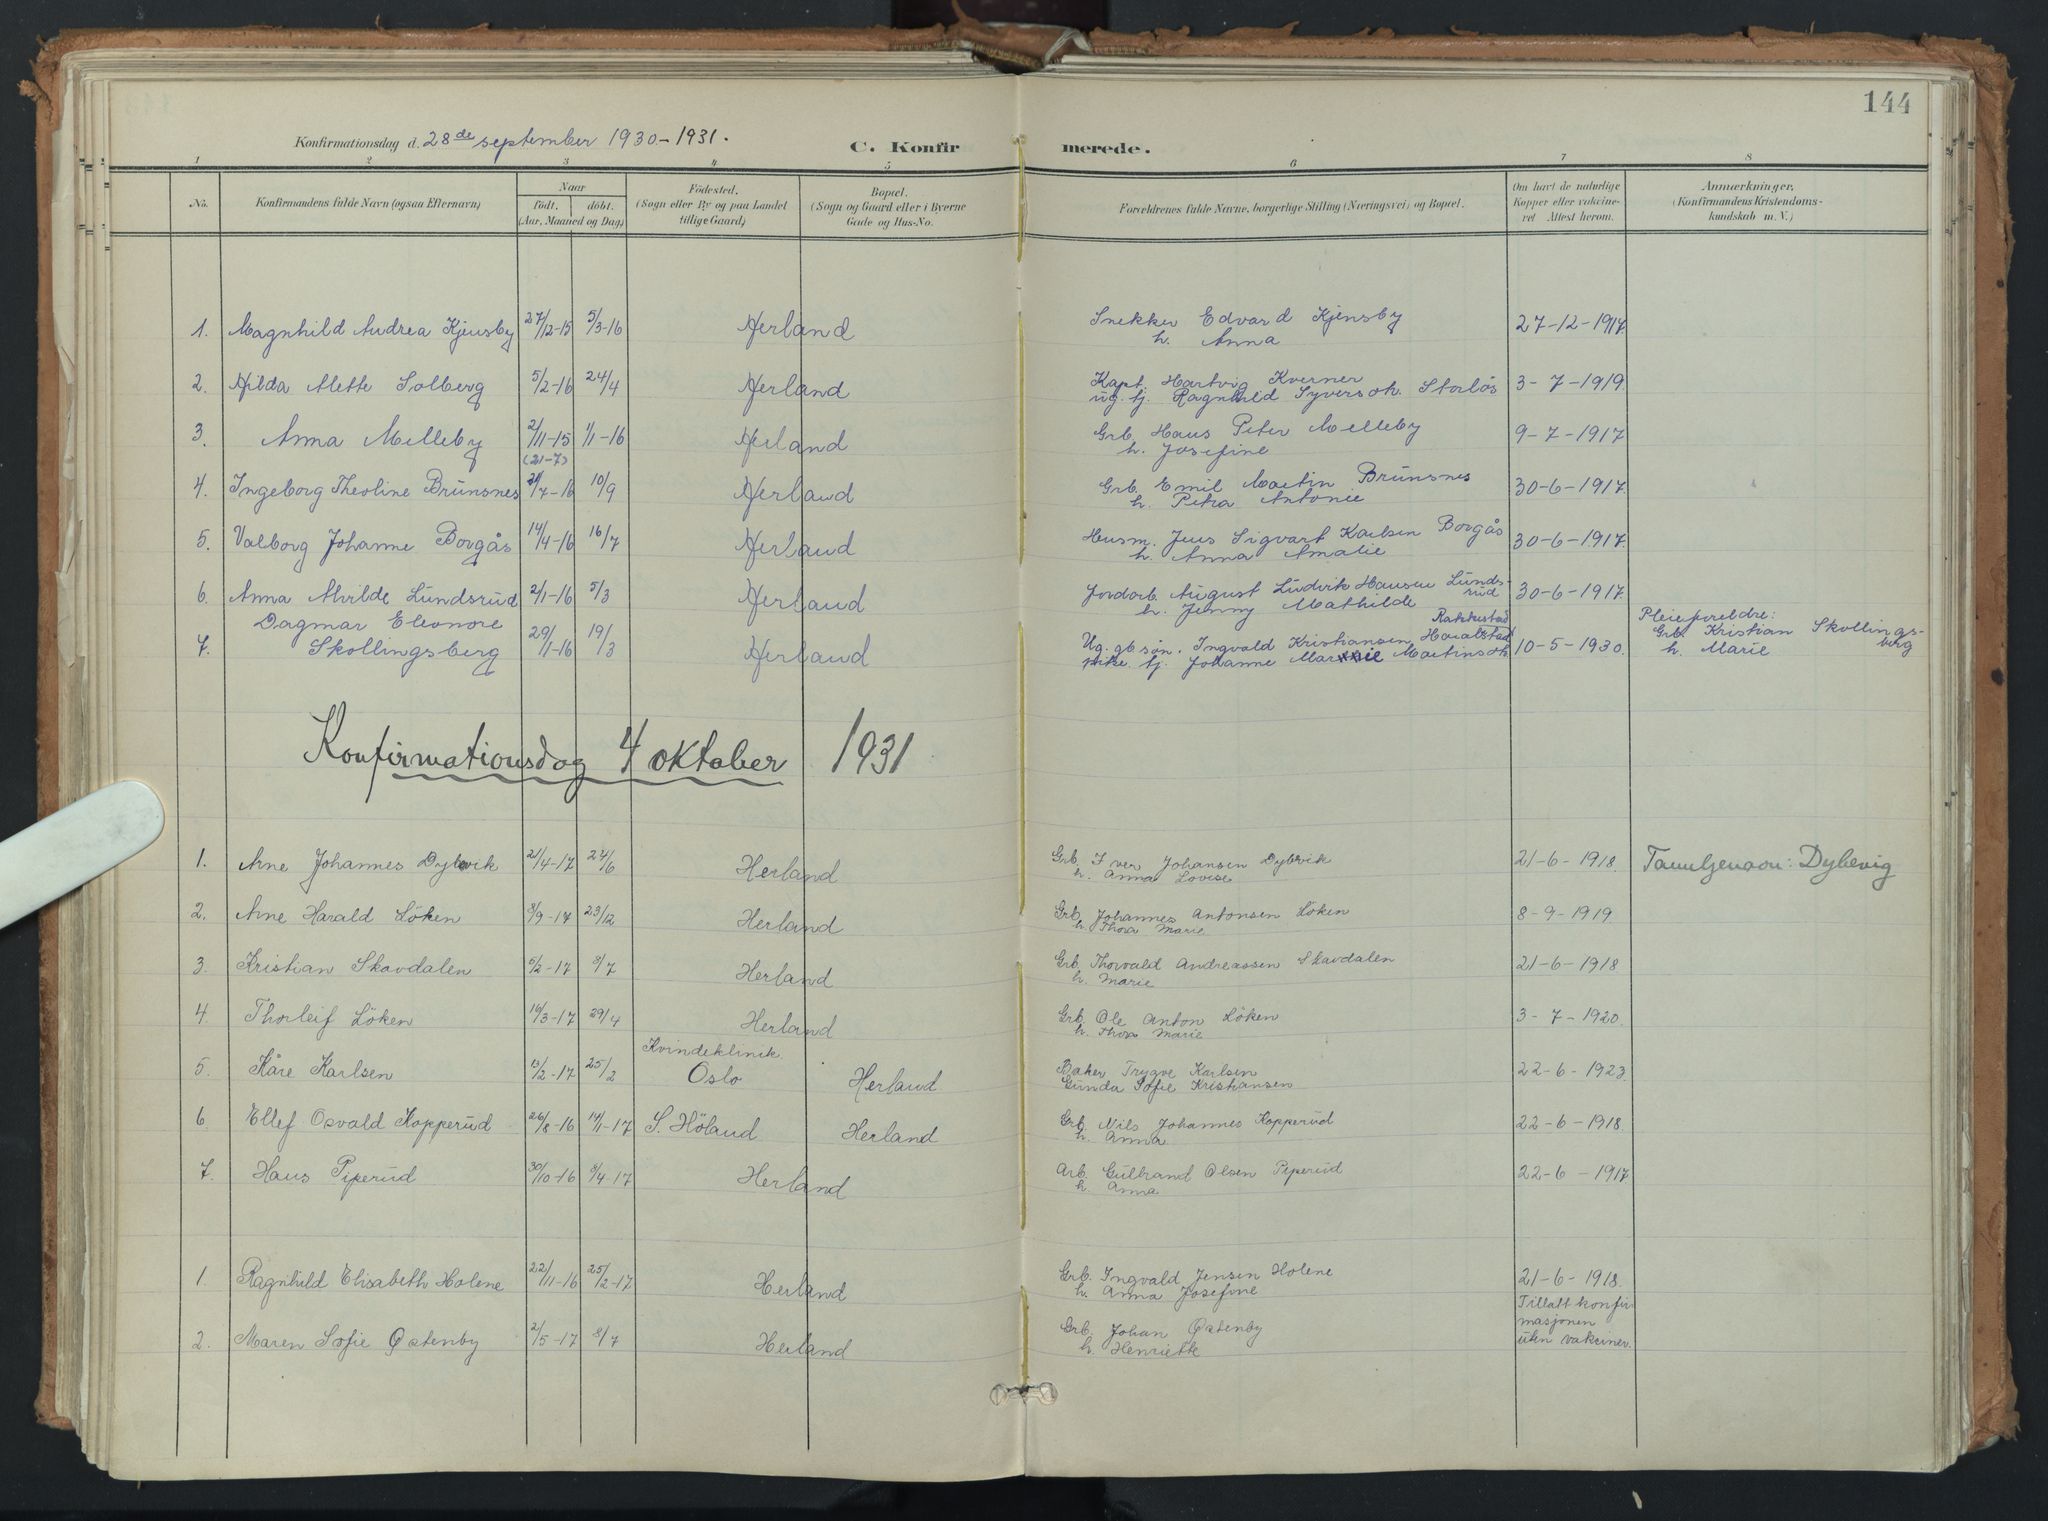 144
Konfirmationsdag d. 28de september 1930-1931.
C. Konfirmerede.
1 2 3 4 5 6 7 8
No.
Konfirmandens fulde Navn (ogsaa Efternavn)
Naar
født. døbt.
(Aar, Maaned og Dag)
Fødested.
(Sogn eller By og paa Landet
tillige Gaard)
Bopæl.
(Sogn og Gaard eller i Byerne
Gade og Hus-No.
Forældrenes fulde Navne, borgerlige Stilling (Næringsvei) og Bopæl.
Om havt de naturlige
Kopper eller vakcine-
ret Attest herom.
Anmærkninger,
(Konfirmandens Kristendoms-
kundskab m. V.)
1. Magnhild Andrea Kjensby 27/12-15 5/3-16 Herland Snekker Edvard Kjensby 27-12-1917
h. Anna
2. Hilda Alette Solberg 5/2-16 24/4 Herland Kapt. Hartvig Kverner 3-7-1919
ug. tj. Ragnhild Syversdt. Storløs
3. Anna Melleby 2/11-15 1/1-16 Herland Grb. Hans Peter Melleby 9-7-1917
h. Josefine
(21-7)
4. Ingeborg Theoline Brünsnes /7-16 10/9 Herland Grb. Emil Martin Brünsnes 30-6-1917.
h. Petra Antonie
5. Valborg Johanne Borgås 14/4-16 16/7 Herland Husm. Jens Sigvart Karlsen Borgås 30-6-1917.
h. Anna Amalie
6. Anna Alvilde Lundsrud 2/1-16 5/3 Herland Jordarb. August Ludvik Hansen Lunds-
rud 30-6-1917.
h. Jenny Mathilde
7. Dagmar Eleonore
Skollingsberg 29/1-16 19/3 Herland Ug. gb. søn. Ingvald Kristiansen Rakkestad 10-5-1930.
pike tj. Johanne Martinsdt.
Pleieforeldre:
Grb. Kristian Skollings-
berg
h. Marie
Konfirmationsdag 4 oktober 1931
1. Arne Johannes Dybvik 21/4-17 24/6 Herland Grb. Iver Johansen Dybvik 21-6-1918 Familjenavn: Dybevig
h. Anna Lovise
2. Arne Harald Löken 8/9-17 23/12 Herland Grb. Johannes Antonsen Löken 8-9-1919
h. Thora Marie
3. Kristian Skavdalen 5/2-17 8/7 Herland Grb. Thorvald Andreassen Skavdalen 21-6-1918
h. Marie
4. Thorleif Löken 16/3-17 29/4 Herland Grb. Ole Anton Löken 3-7-1920
h. Thora Marie
5. Kåre Karlsen 13/2-17 25/2 Kvindeklinik
Oslo Herland Baker Trygve Karlsen 22-6-1923
Gunda Sofie Kristiansen
6. Ellef Osvald Kopperud 26/8-16 14/1-17 S. Höland Herland Grb. Nils Johannes Kopperud 22-6-1918.
h. Anna
7. Hans Piperud 30/10-16 8/4-17 Herland Arb. Gulbrand Olsen Piperud 22-6-1917
h. Anna
1. Ragnhild Elisabeth Holene 22/11-16 25/2-17 Herland Grb. Ingvald Jensen Holene 21-6-1918.
h. Anna Josefine
2. Maren Sofie Østenby 2/5-17 8/7 Herland Grb. Johan Østenby
h. Henriette
Tillatt konfir-
masjonen
uten vakciner.